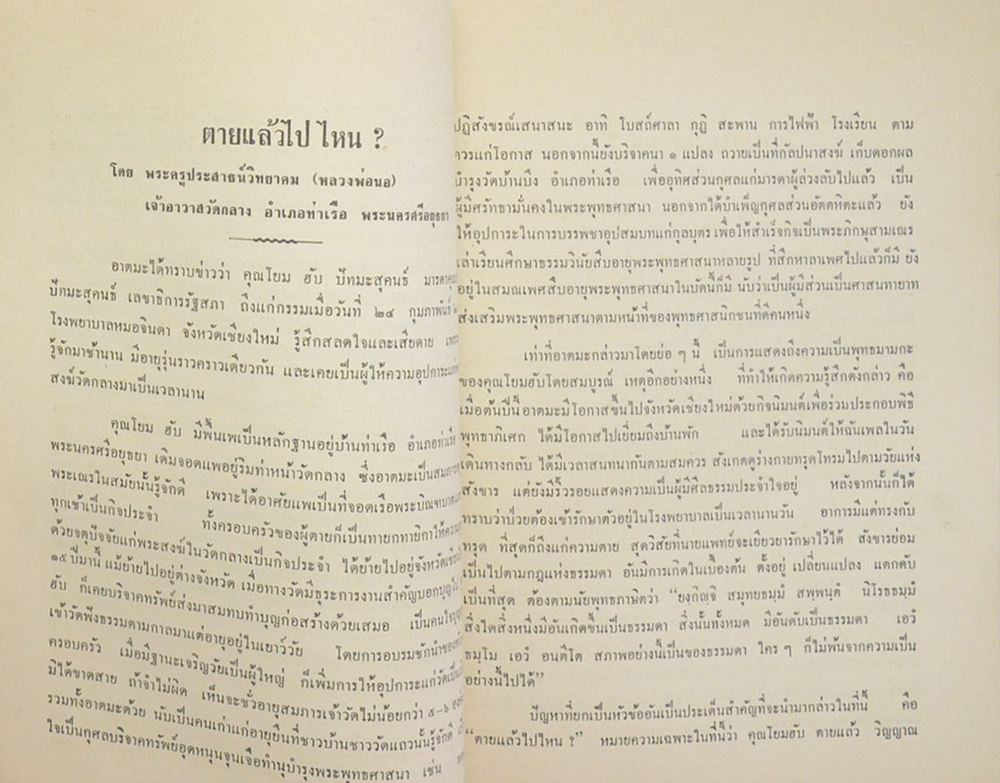 ตายแล้วไป ไหน ?
โดย พระครูประสาธน์วิทยาคม (หลวงพ่อนอ)
เจ้าอาวาสวัดกลาง อำเภอท่าเรือ พระนครศรีอยุธยา
อาตมะได้ทราบข่าวว่า คุณโยม ฮับ ปัทมะสุคนธ์ มารดาคุณ
ปัทมะสุคนธ์ เลขาธิการรัฐสภา ถึงแก่กรรมเมื่อวันที่ ๒๔ กุมภาพันธ์
โรงพยาบาลหมอจินดา จังหวัดเชียงใหม่ รู้สึกสลดใจและเสียดาย เพราะ
รู้จักมาช้านาน มีอายุรุ่นราวคราวเดียวกัน และเคยเป็นผู้ให้ความอุปการะแก่
สงฆ์วัดกลางมาเป็นเวลานาน
คุณโยม ฮับ มีพื้นเพเป็นหลักฐานอยู่บ้านท่าเรือ อำเภอท่าเรือ
พระนครศรีอยุธยา เดิมจอดแพอยู่ริมท่าหน้าวัดกลาง ซึ่งอาตมะเป็นสมภาร
พระเณรในสมัยนั้นรู้จักดี เพราะได้อาศัยแพเป็นที่จอดเรือพระบิณฑบาต
ทุกเช้าเป็นกิจประจำ ทั้งครอบครัวของผู้ตายก็เป็นทายกทายิกาให้ความ
ด้วยจตุปัจจัยแก่พระสงฆ์ในวัดกลางเป็นกิจประจำ ได้ย้ายไปอยู่จังหวัดเชียงใหม่
๑๕ ปีมานี้ แม้ย้ายไปอยู่ต่างจังหวัด เมื่อทางวัดมีธุระการงานสำคัญบอกบุญไป
ฮับ ก็เคยบริจาคทรัพย์ส่งมาสมทบทำบุญก่อสร้างด้วยเสมอ เป็นคนใจบุญ
เข้าวัดฟังธรรมตามกาลมาแต่อายุอยู่ในเยาว์วัย โดยการอบรมชักนำของ
ครอบครัว เมื่อมีฐานะเจริญวัยเป็นผู้ใหญ่ ก็เพิ่มการให้อุปการะแก่วัดเป็น
มิได้ขาดสาย ถ้าจำไม่ผิด เห็นจะชั่วอายุสมภารเจ้าวัดไม่น้อยกว่า ๕-๖ องค์
รวมทั้งอาตมะด้วย นับเป็นคนเก่าแก่อายุยืนที่ชาวบ้านชาววัดแถวนั้นรู้จักดี
ใจเป็นกุศลบริจาคทรัพย์อุดหนุนจุนเจือทำนุบำรุงพระพุทธศาสนา เช่น
ปฏิสังขรณ์เสนาสนะ อาทิ โบสถ์ศาลา กุฏิ สะพาน การไฟฟ้า โรงเรียน ตาม
ควรแก่โอกาส นอกจากนี้ยังบริจาคนา ๑ แปลง ถวายเป็นที่กัลปนาสงฆ์ เก็บดอกผล
บำรุงวัดบ้านบึง อำเภอท่าเรือ เพื่ออุทิศส่วนกุศลแก่มารดาผู้ล่วงลับไปแล้ว เป็น
ผู้มีศรัทธามั่นคงในพระพุทธศาสนา นอกจากได้บำเพ็ญกุศลส่วนอัตตหิตะแล้ว ยัง
ให้อุปการะในการบรรพชาอุปสมบทแก่กุลบุตร เพื่อให้สำเร็จกิจเป็นพระภิกษุสามเณร
เล่าเรียนศึกษาธรรมวินัยสืบอายุพระพุทธศาสนาหลายรูป ที่สึกหาลาเพศไปแล้วก็มี ยัง
อยู่ในสมณเพศสืบอายุพระพุทธศาสนาในบัดนี้ก็มี นับว่าเป็นผู้มีส่วนเป็นศาสนทายาท
ส่งเสริมพระพุทธศาสนาตามหน้าที่ของพุทธศาสนิกชนที่ดีคนหนึ่ง
เท่าที่อาตมะกล่าวมาโดยย่อ ๆ นี้ เป็นการแสดงถึงความเป็นพุทธมามกะ
ของคุณโยมฮับโดยสมบูรณ์ เหตุอีกอย่างหนึ่ง ที่ทำให้เกิดความรู้สึกดังกล่าว คือ
เมื่อต้นปีนี้ อาตมะมีโอกาสขึ้นไปจังหวัดเชียงใหม่ด้วยกิจนิมนต์เพื่อร่วมประกอบพิธี
พุทธาภิเศก ได้มีโอกาสไปเยี่ยมถึงบ้านพัก และได้รับนิมนต์ให้ฉันเพลในวัน
เดินทางกลับ ได้มีเวลาสนทนากันตามสมควร สังเกตดูร่างกายทรุดโทรมไปตามวัยแห่ง
สังขาร แต่ยังมีริ้วรอยแสดงความเป็นผู้มีศีลธรรมประจำใจอยู่ หลังจากนั้นก็ได้
ทราบว่าป่วยต้องเข้ารักษาตัวอยู่ในโรงพยาบาลเป็นเวลานานวัน อาการมีแต่ทรงกับ
ทรุด ที่สุดก็ถึงแก่ความตาย สุดวิสัยที่นายแพทย์จะเยียวยารักษาไว้ได้ สังขารย่อม
เป็นไปตามกฎแห่งธรรมดา อันมีการเกิดในเบื้องต้น ตั้งอยู่ เปลี่ยนแปลง แตกดับ
เป็นที่สุด ต้องตามนัยพุทธภาษิตว่า “ยงฺกิญฺจิ สมุทยธมฺมํ สพฺพนฺตํ นิโรธธมฺมํ
สิ่งใดสิ่งหนึ่งมีอันเกิดขึ้นเป็นธรรมดา สิ่งนั้นทั้งหมด มีอันดับเป็นธรรมดา เอวํ
ธมฺโม เอวํ อนตีโต สภาพอย่างนี้เป็นของธรรมดา ใคร ๆ ก็ไม่พ้นจากความเป็น
อย่างนี้ไปได้”
ปัญหาที่ยกเป็นหัวข้ออันเป็นประเด็นสำคัญที่จะนำมากล่าวในที่นี้ คือ
“ตายแล้วไปไหน ?” หมายความเฉพาะในที่นี้ว่า คุณโยมฮับ ตายแล้ว วิญญาณ